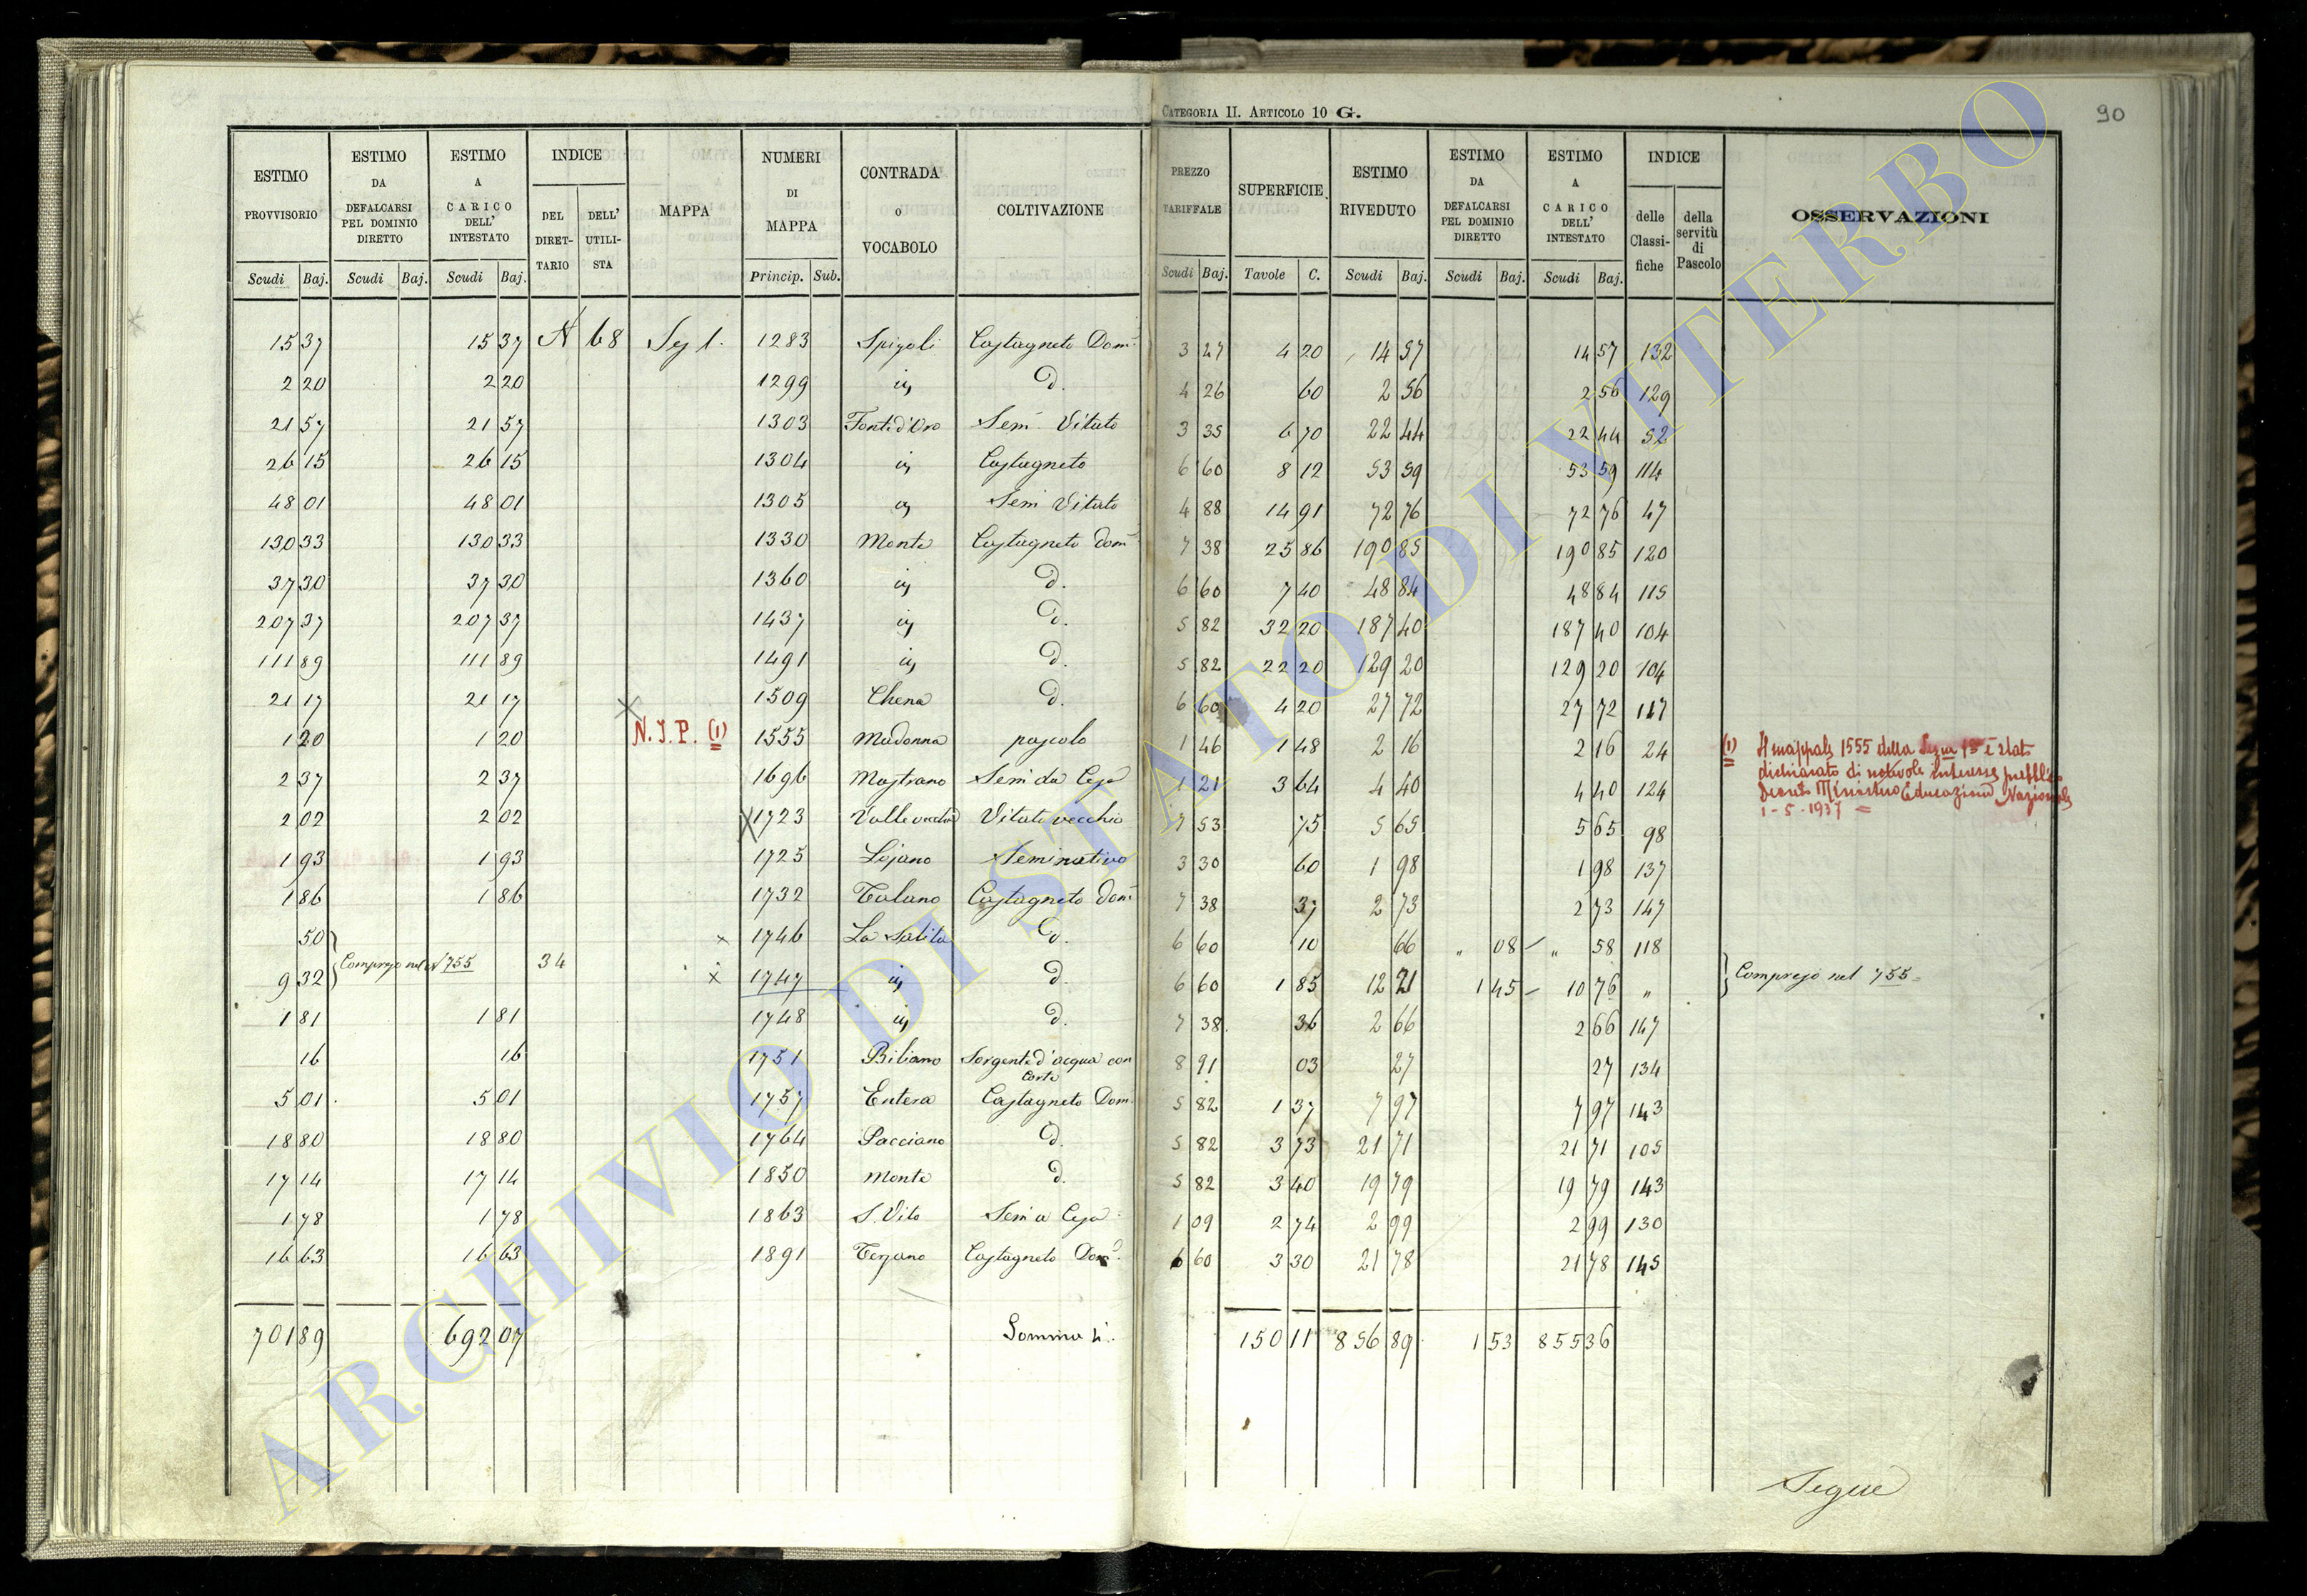 CATEGORIA II. ARTICOLO 10 G.
90
ESTIMO PROVVISORIO
ESTIMO DA DEFALCARSI PEL DOMINIO DIRETTO
ESTIMO A CARICO DELL' INTESTATO
INDICE
DEL DIRET-TARIO
DELL' UTILI-STA
MAPPA
NUMERI DI MAPPA
CONTRADA o VOCABOLO
COLTIVAZIONE
PREZZO TARIFFALE
SUPERFICIE
ESTIMO RIVEDUTO
ESTIMO DA DEFALCARSI PEL DOMINIO DIRETTO
ESTIMO A CARICO DELL' INTESTATO
INDICE
delle Classi-fiche
della servitù di Pascolo
OSSERVAZIONI
Scudi Baj. Scudi Baj. Scudi Baj. Princip. Sub. Scudi Baj. Tavole C. Scudi Baj. Scudi Baj. Scudi Baj.
15 37 15 37 N 68 Sez 1. 1283 Spigoli Castagneto Dom. 3 27 4 20 14 57 14 57 132
2 20 2 20 1299 d. 4 26 60 2 56 2 56 129
21 57 21 57 1303 Fonte d'Oro Sem. Vitato 3 35 6 70 22 44 22 44 52
26 15 26 15 1304 Castagneto 6 60 8 12 53 59 53 59 114
48 01 48 01 1305 Sem Vitato 4 88 14 91 72 76 72 76 47
130 33 130 33 1330 Monte Castagneto dom 7 38 25 86 190 85 190 85 120
37 30 37 30 1360 d. 6 60 7 40 48 84 48 84 115
207 37 207 37 1437 d. 5 82 32 20 187 40 187 40 104
111 89 111 89 1491 d. 5 82 22 20 129 20 129 20 104
21 17 21 17 1509 Chena d. 6 60 4 20 27 72 27 72 117
1 20 1 20 N.I.P. (1) 1555 Madonna pascolo 1 46 1 48 2 16 2 16 24
(1) Il mappale 1555 della è stato
dichiarato di notevole interesse pubblico
Decreto Ministero Educazione Nazionale
1-5-1937
2 37 2 37 1696 Mastrano Sem da 1 21 3 64 4 40 4 40 124
2 02 2 02 1723 Valle vecchia Vitato vecchio 7 53 75 5 65 5 65 98
1 93 1 93 1725 Lejano Seminativo 3 30 60 1 98 1 98 137
1 86 1 86 1732 Talano Castagneto dom. 7 38 37 2 73 2 73 147
50 1746 La Salita d. 6 60 10 66 " 08 " 58 118
Compreso nel N 755 34 Compreso nel 755
9 32 1747 d. 6 60 1 85 12 21 1 45 10 76 "
1 81 1 81 1748 d. 7 38 36 2 66 2 66 147
16 16 1751 Biliano Sorgente d'acqua con Corte 8 91 03 27 27 134
5 01 5 01 1757 Entera Castagneto Dom. 5 82 1 37 7 97 7 97 143
18 80 18 80 1764 Pacciano d. 5 82 3 73 21 71 21 71 105
17 14 17 14 1850 Monte d. 5 82 3 40 19 79 19 79 143
1 78 1 78 1863 S. Vito Sem a 1 09 2 74 2 99 2 99 130
16 63 16 63 1891 Terzano Castagneto Dom. 6 60 3 30 21 78 21 78 145
701 89 692 07 Somma 150 11 856 89 1 53 855 36
Segue
ARCHIVIO DI STATO DI VITERBO